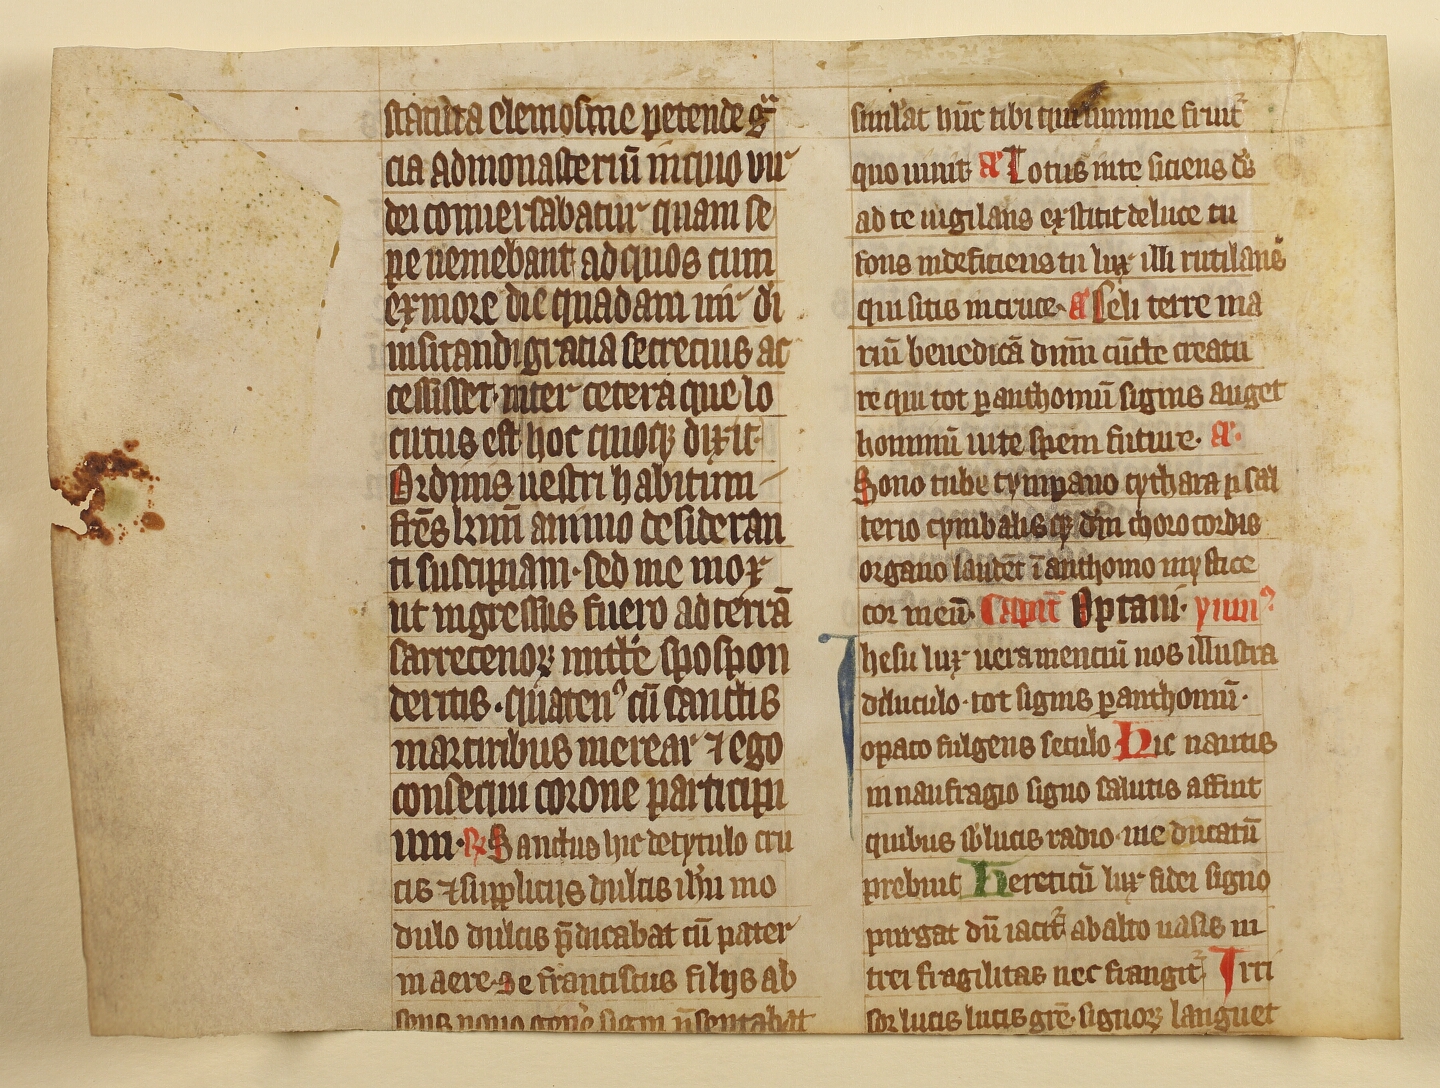 statuta elemosine petende gr̄a
cia ad monasteriū in quo vir
dei conuersabatur quam se
pe ueniebant ad quos cum
ex more die quadam uir di
uisitandi gracia secrecius ac
cessisset· inter cetera que lo
cutus est hoc quoqꝫ dixit·
Ordinis uestri habitum
fr̄es kr̄mi animo desideran
ti suscipiam· sed me mox
ut ingressus fuero ad terrā
sarracenoꝝ mitte spospon
deritis· quatenꝰ cū sanctis
martiribus merear ⁊ ego
consequi corone participi
um· ℟ Sanctus hic de tytulo cru
cis ⁊ supplicijs dulcis ih̄u mo
dulo dulcis p̄dicabat cū pater
in aere· Se franciscus filijs ab
sens nouo gen̄e signi p̄sentabat
similat hūc tibi
quo uiuit A᷑ Totus in te siciens ds̄
ad te uigilans extitit de luce tu
fons indeficiens tu lux illi rutilans
qui sitis in cruce· A᷑ Celi terre ma
riū benedicā dn̄m cūcte creatu
re qui tot ꝑ anthoniū signis auget
hominū uite spem future· A᷑·
Sono tube tympano cythara psal
terio cymbalisqꝫ dn̄m choro cordis
organo laudet ī anthonio mystice
cor meū· Capit̄ Optaui· ymnꝰ
Ihesu lux uera mencium nos illustra
diluculo· tot signis ꝑ anthoniū·
optato fulgens seculo Hic nautis
in naufragio signo salutis affuit
quibus sb̄ lucis radio· uie ducatū
prebuit Hereticū lux fidei signo
purgat dū iacit᷑ ab alto uasis ui
trei fragilitas nec frangit᷑ Tri
sor lucis lucis gr̄e· signoꝝ languet